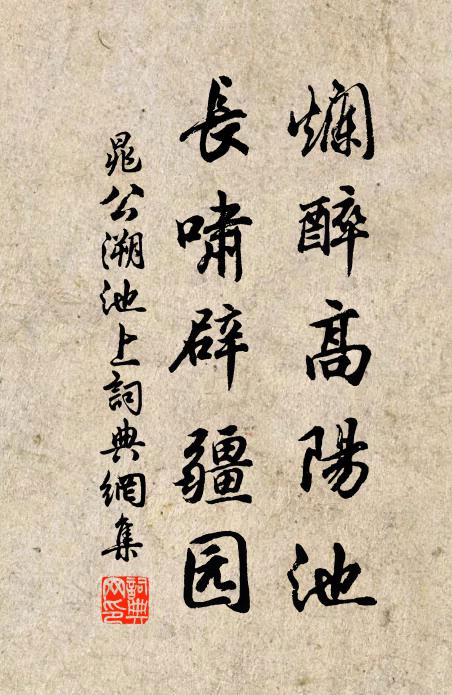 爛醉高陽池
長嘯辟疆园
晁公溯池上詞典網集
詞典網印